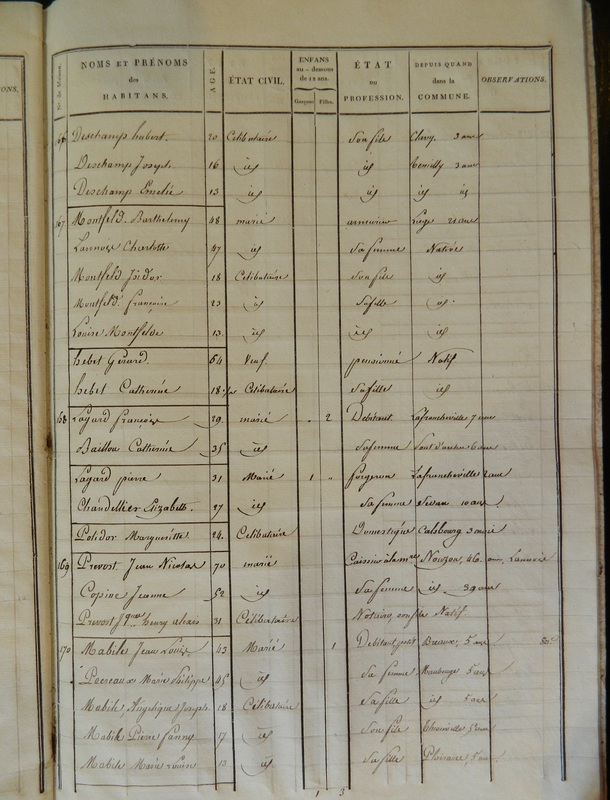 ONS.
No. de Maison. NOMS ET PRÉNOMS des HABITANS. AGE. ÉTAT CIVIL. ENFANS au-dessous de 12 ans. Garçons Filles. ÉTAT ou PROFESSION. DEPUIS QUAND dans la COMMUNE. OBSERVATIONS.
66 Deschamp hubert. 20 Celibataire son fils 3 ans
Deschamp Joseph 16 id id 3 ans
Deschamp Emelie 13 id id id id
167 Montfeld. Barthelemy 48 marié armurier Liege 21 ans
Lannoix Charlotte 47 id Sa femme Native
Montfeld Isidor 18 Celibataire Son fils id
Montfeld françoise 23 id Sa fille id
Louise Montfelde 13 id id id
hebet Gérard. 64 Veuf pensionné Natif
hebet Catherine 18 Celibataire Sa fille id
168 Lagard françois 29. marié 2 Debitant Lafrancheville 7 ans
Baillou Catherine 35 id Sa femme
Lagard pierre 31 Marié 1 forgeron Lafrancheville 2 ans
Chandellier Elizabeth. 27 id Sa femme Sedan 10 ans
Polidor Margueritte 24. Celibataire Domestique Calsbourg 3 mois
169 Prevost Jean Nicolas 70 marié Nouzon, 46. ans,
Copine Jeanne 52 id Sa femme id 39 ans
Prevost henry alexis 31 Célibataire Notaire, son fils Natif
170 Mabile Jean Louis 43 Marié 1 Debitant, 5 ans
Marie Philippe 45 id Sa femme Maubeuge 5 ans
Mabile, Angelique Joseph 18 Célibataire Sa fille id 5 ans
Mabile Pierre Fanny 17 id Son fils 5 ans
Mabile Marie Louise 13 id Sa fille 5 ans
1 3